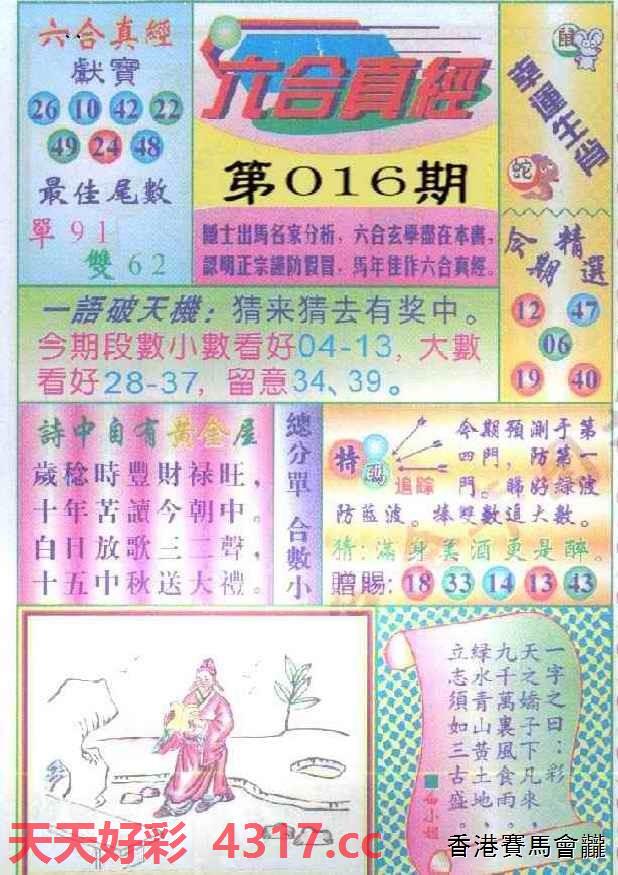 六合真經
獻寶
26 10 42 22
49 24 48
最佳尾數
單91
雙62
六合真經
第016期
隱士出馬名家分析，六合玄學盡在本書，
認明正宗謹防假冒，馬年佳作六合真經。
鼠
幸運生肖
蛇
今期精選
12 47
06
19 40
一語破天機：猜来猜去有奖中。
今期段數小數看好04-13，大數
看好28-37，留意34、39。
詩中自有黃金屋
歲稔時豐財禄旺，
十年苦讀今朝中。
白日放歌三二聲，
十五中秋送大禮。
總分單 合數小
特碼
追踪
今期預測于第
四門，防第一
門。睇好綠波
防藍波。捧雙數追大數。
猜：滿身美酒更是醉。
贈賜：18 33 14 13 43
一字之曰：彩
天之嬌子下凡來，
九千萬裏風食雨，
緑水青山黃土地，
立志須如三古盛。
天天好彩 4317.cc
香港賽馬會